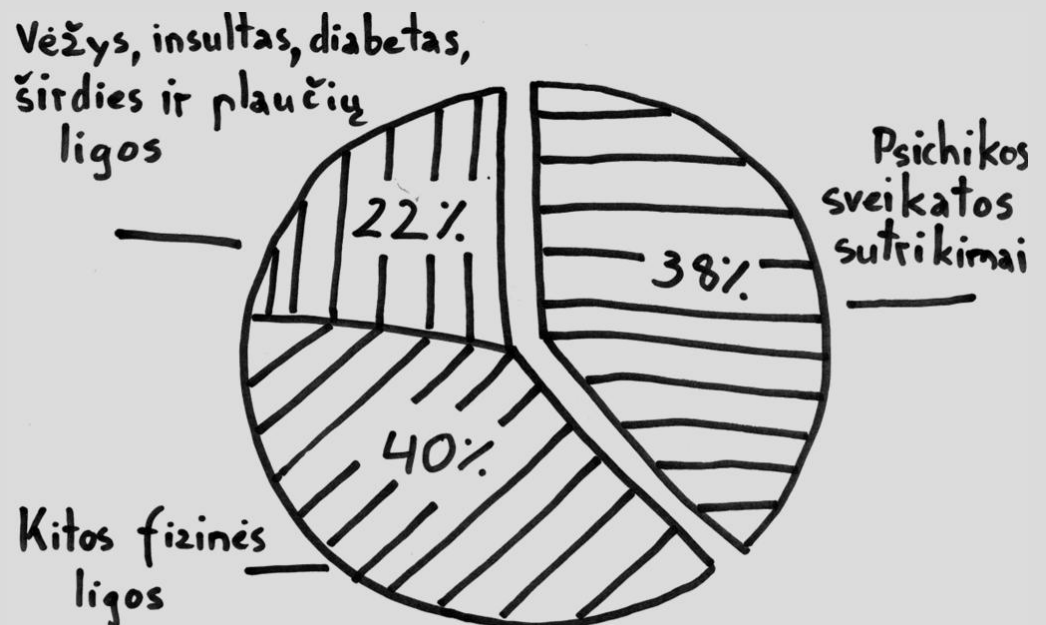 Vėžys, insultas, diabetas,
širdies ir plaučių
ligos
22%
Psichikos
sveikatos
sutrikimai
38%
40%
Kitos fizinės
ligos